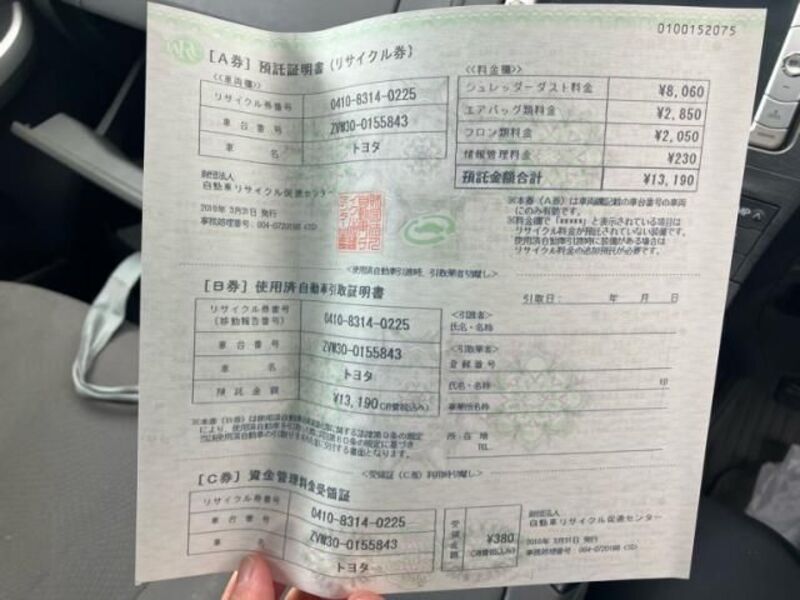 0100152075
[A券] 預託証明書(リサイクル券)
≪車両欄≫
リサイクル券番号 0410-8314-0225
車台番号 ZVW30-0155843
車名 トヨタ
財団法人
自動車リサイクル促進センター
2010年 3月31日 発行
≪料金欄≫
シュレッダーダスト料金 ¥8,060
エアバッグ類料金 ¥2,850
フロン類料金 ¥2,050
情報管理料金 ¥230
預託金額合計 ¥13,190
※本券(A券)は車両欄記載の車台番号の車両
にのみ有効です。
※料金欄で「*****」と表示されている項目は
リサイクル料金が預託されていない装備です。
使用済自動車引渡時に装備がある場合は
リサイクル料金の追加預託が必要です。
<使用済自動車引渡時、引取業者切離し>
[B券] 使用済自動車引取証明書
リサイクル券番号
(移動報告番号) 0410-8314-0225
車台番号 ZVW30-0155843
車名 トヨタ
預託金額 ¥13,190(消費税込み)
引取日: 年 月 日
<引渡者>
氏名・名称
<引取業者>
登録番号
氏名・名称 印
事業所名称
所在地
TEL
<受領証(C券)利用時切離し>
[C券] 資金管理料金受領証
リサイクル券番号 0410-8314-0225
車台番号 ZVW30-0155843
車名 トヨタ
受領金額 ¥380
(消費税込み)
財団法人
自動車リサイクル促進センター
2010年 3月31日 発行